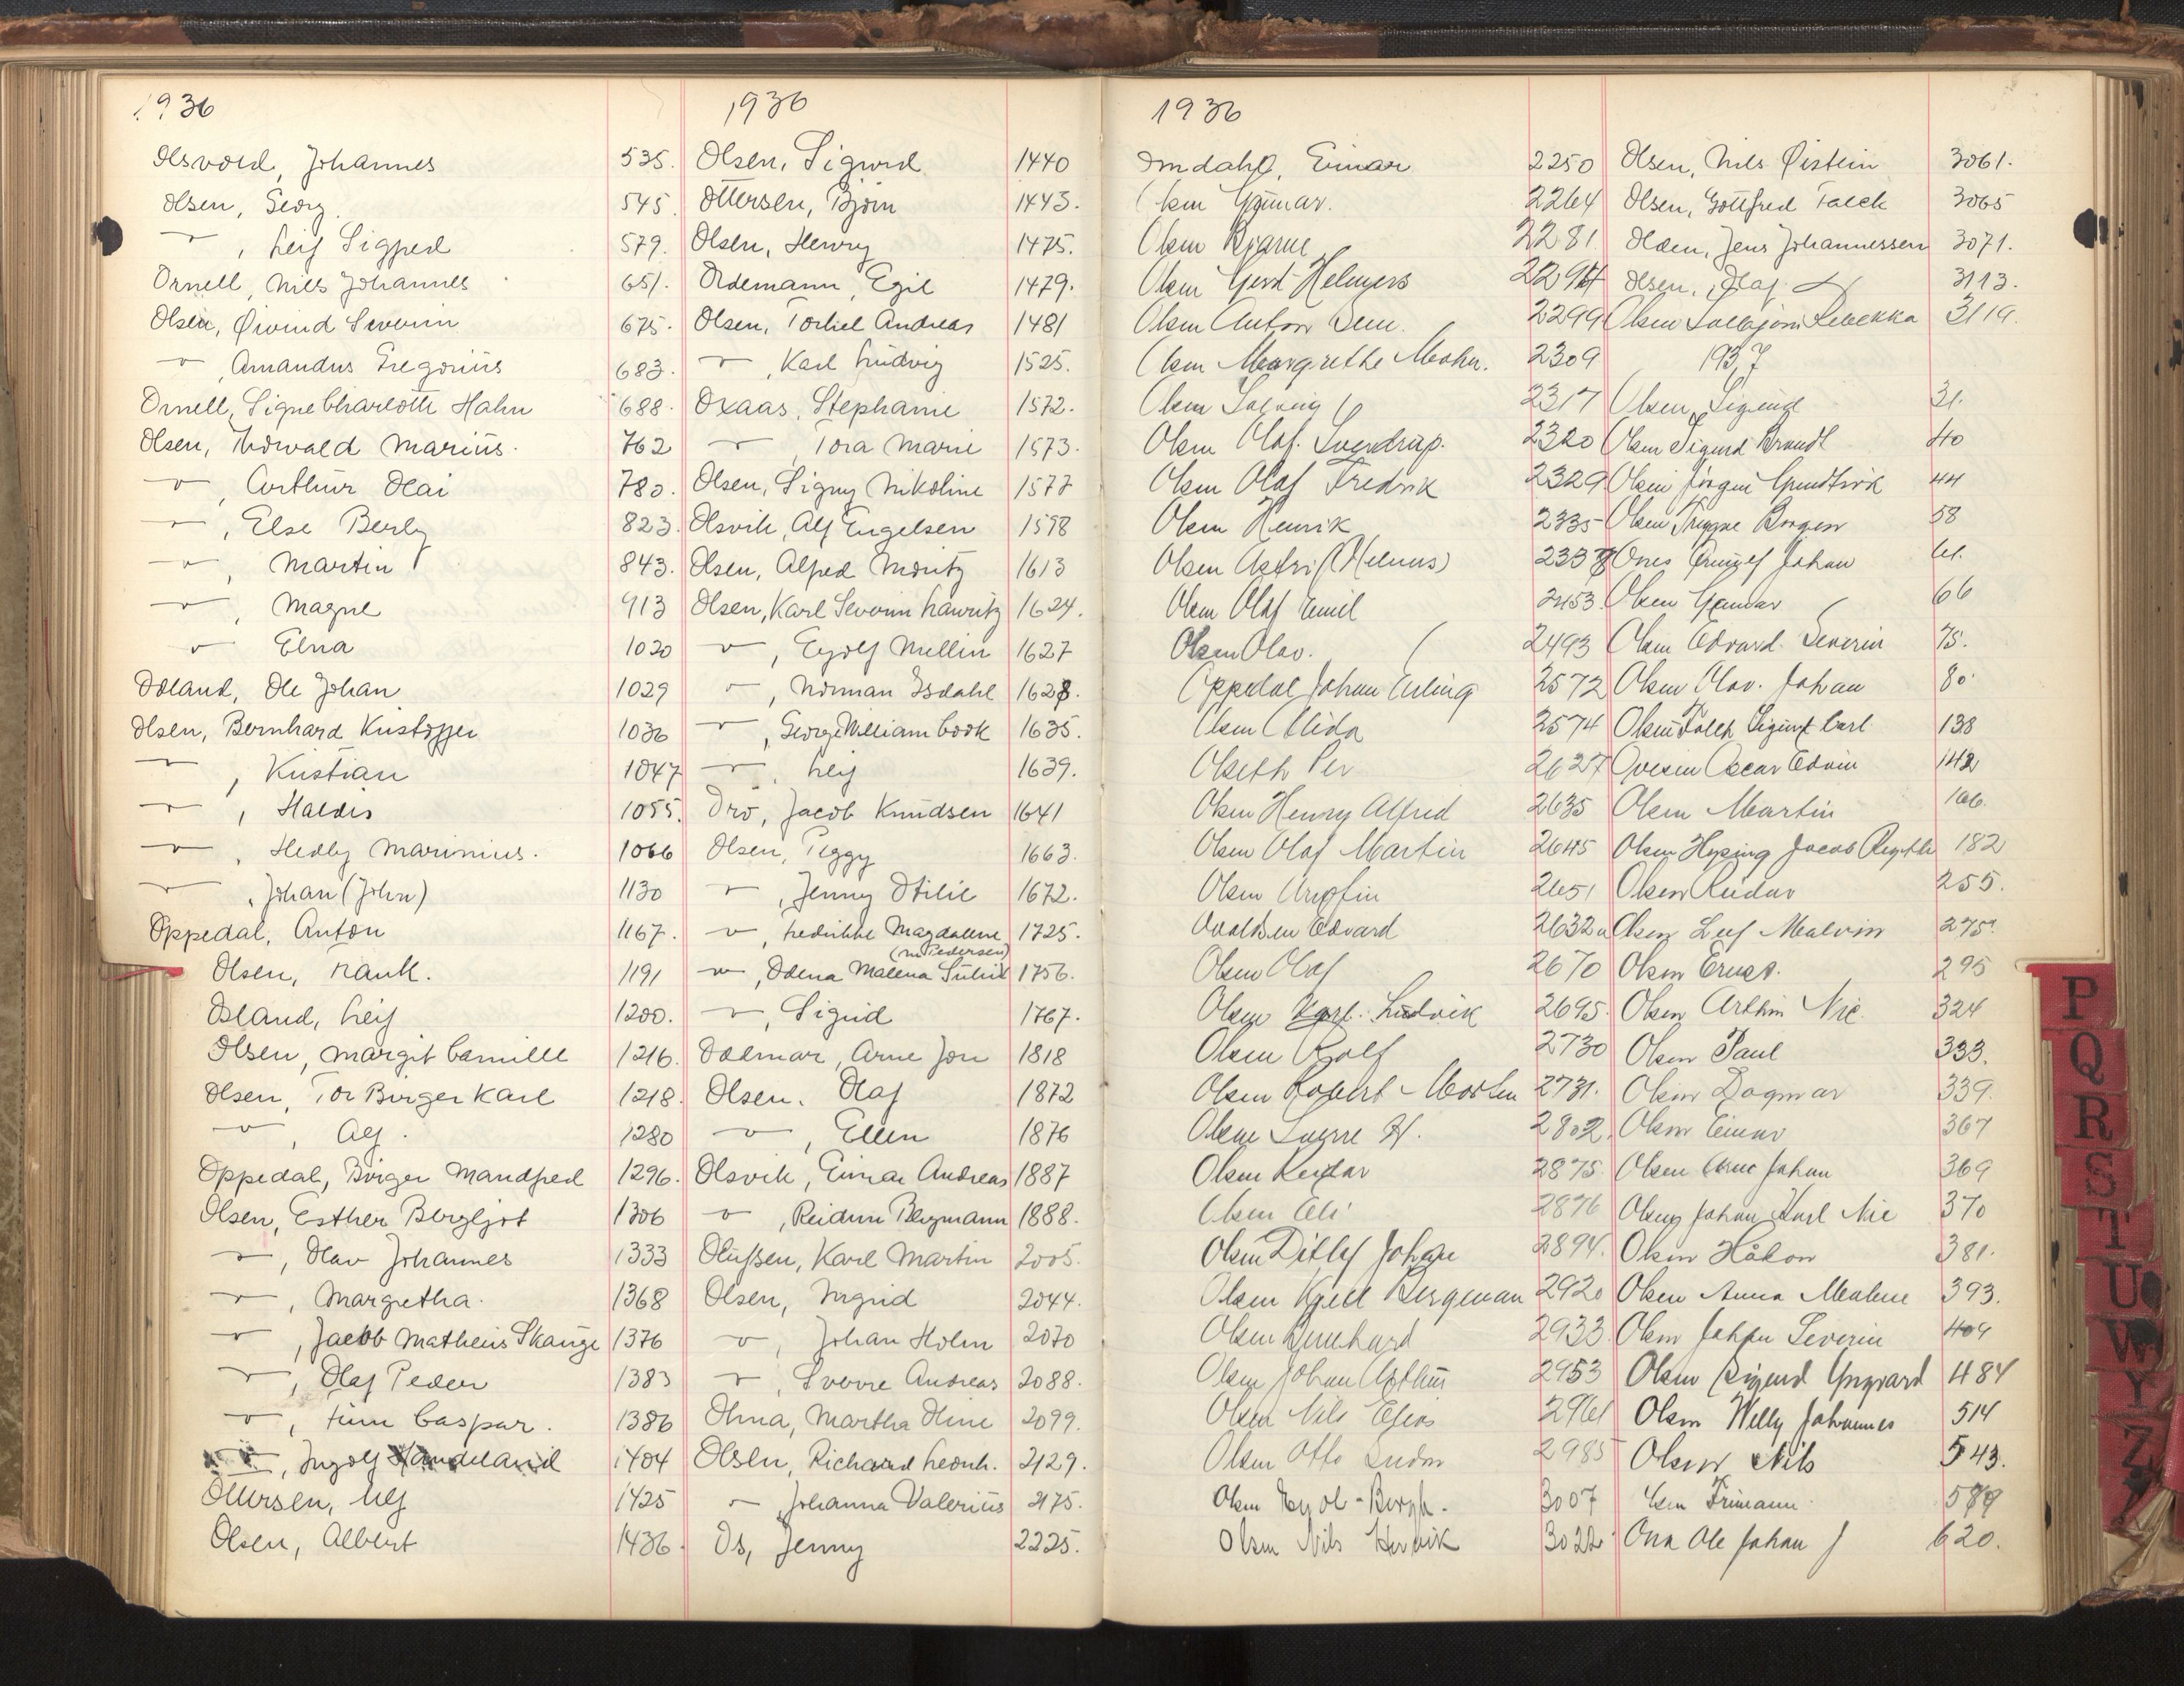 1936
Olsvold, Johannes 535.
Olsen, Georg. 545.
" , Leif Sigfred 579.
Ornell, Nils Johannes 651.
Olsen, Øivind Severin 675.
" , Amandus Gregorius 683.
Ornell, Signe Charlotte Hahn 688.
Olsen, Thorvald Marius. 762
" , Arthur Olai 780.
" , Else Berly 823.
" , Martin 843.
" , Magne 913
" Elna 1020
Odland, Ole Johan 1029
Olsen, Bernhard Kristoffer 1036
" , Kristian 1047
" , Haldis 1055.
" , Hedly Marinius. 1066
" , Johan (John) 1130
Oppedal, Anton 1167.
Olsen, Frank. 1191
Osland, Leif 1200.
Olsen, Margit Camille 1216.
Olsen, Tor Birger Karl 1218.
" , Alf. 1280
Oppedal, Birger Mandfred 1296.
Olsen, Esther Bergljot 1306
" , Olav Johannes 1333
" , Margretha. 1368
" , Jacob Matheus Skauge 1376
" , Olaf Peder 1383
" , Finn Caspar. 1386
" , Ingolf Handeland 1404
Ottersen, Ulf 1425
Olsen, Albert 1436.
1936
Olsen, Sigurd 1440
Ottersen, Bjørn 1443.
Olsen, Henry 1475.
Ordemann, Egil 1479.
Olsen, Torkel Andreas 1481
" , Karl Ludvig 1525.
Oxaas, Stephanie 1572.
" , Tora Marie 1573.
Olsen, Signy Nikoline 1577
Olsvik, Alf Engelsen 1598
Olsen, Alfred Moritz 1613
Olsen, Karl Severin Lauritz 1624.
" , Eyolf Mellin 1627
" , Norman Isdahl 1628.
" , George William Cook 1635.
" , Leif 1639.
Oro, Jacob Knudsen 1641
Olsen, Peggy 1663.
" , Jenny Otilie 1672.
" , Fredrikke Magdalene 1725.
(m Pedersen)
" , Odena Malena 1756.
" , Sigrid 1767.
Odlmar, Arne Jon 1818
Olsen. Olaf 1872
" , Ellen 1876
Olsvik, Einar Andreas 1887
" , Reidun Bergmann 1888.
Olufsen, Karl Martin 2005.
Olsen, Ingrid 2044.
" , Johan Holm 2070
" , Sverre Andreas 2088.
Olma, Martha Oline 2099.
Olsen, Richard Leonh. 2129.
" , Johanna Valerius 2175.
Os, Jenny 2225.
1936
Omdahl, Einar 2250
Olsen Gunnar. 2264
Olsen Bjarne 2281
Olsen Gerd Helmers 2294
Olsen Anton Sem. 2299
Olsen Margrethe Mohn. 2309
Olsen Solveig 2317
Olsen Olaf. Sverdrup. 2320
Olsen Olaf Fredrik 2329
Olsen Henrik 2335
Olsen Astri (Helmus) 2337
Olsen Olaf Emil 2453
Olsen Olav. 2493
Oppedal Johan Erling 2572
Olsen Alida 2574
Olseth Per 2627
Olsen Henry Alfred 2635
Olsen Olaf Martin 2645
Olsen Arnfin 2651
Ovaldsen Edvard 2632a
Olsen Olaf 2670
Olsen Karl. Ludvik 2695.
Olsen Rolf 2730
Olsen Robert-Morten 2731.
Olsen Sverre H. 2802.
Olsen Reidar 2875.
Olsen Eli 2876
Olsen Ditlef Johan 2894.
Olsen Kjell Bergman 2920
Olsen Bernhard 2933.
Olsen Johan Arthur 2953
Olsen Nils Elias 2961
Olsen Otto Ludv 2985
Olsen 3007
Olsen Nils Henrik 3022
Olsen, Nils Øistein 3061.
Olsen, Gottfred Falck 3065
Olsen, Jens Johannessen 3071.
Olsen, Olaf 3113.
Olsen Rebekka 3119.
1937
Olsen, Sigurd 31.
Olsen Sigurd Brandt 40
Olsen Jørgen Grundtvik 44
Olsen Trygve Borgen 58
Ones Johan 61.
Olsen Gunnar 66
Olsen Edvard Severin 75.
Olsen Olav. Johan 80.
Olsen Falck Sigurd Carl 138
Ovesen Oscar Edvin 142
Olsen Martin 166.
Olsen Hysing Jacob 182
Olsen Reidar 255.
Olsen Leif Malvin 275.
Olsen Ernst. 295
Olsen Arthur Nic. 324
Olsen Paul 333.
Olsen Dagmar 339.
Olsen Einar 367
Olsen Arne Johan 369
Olsen Johan Karl Nic 370
Olsen Håkon 381.
Olsen Anna Malene 393.
Olsen Johan Severin 409
Olsen Sigurd Yngvard 484
Olsen Willy Johannes 514
Olsen Nils 543.
Olsen Frimann 589
Ona Ole Johan J 620.
P
Q
R
S
T
U
W
Y
Z